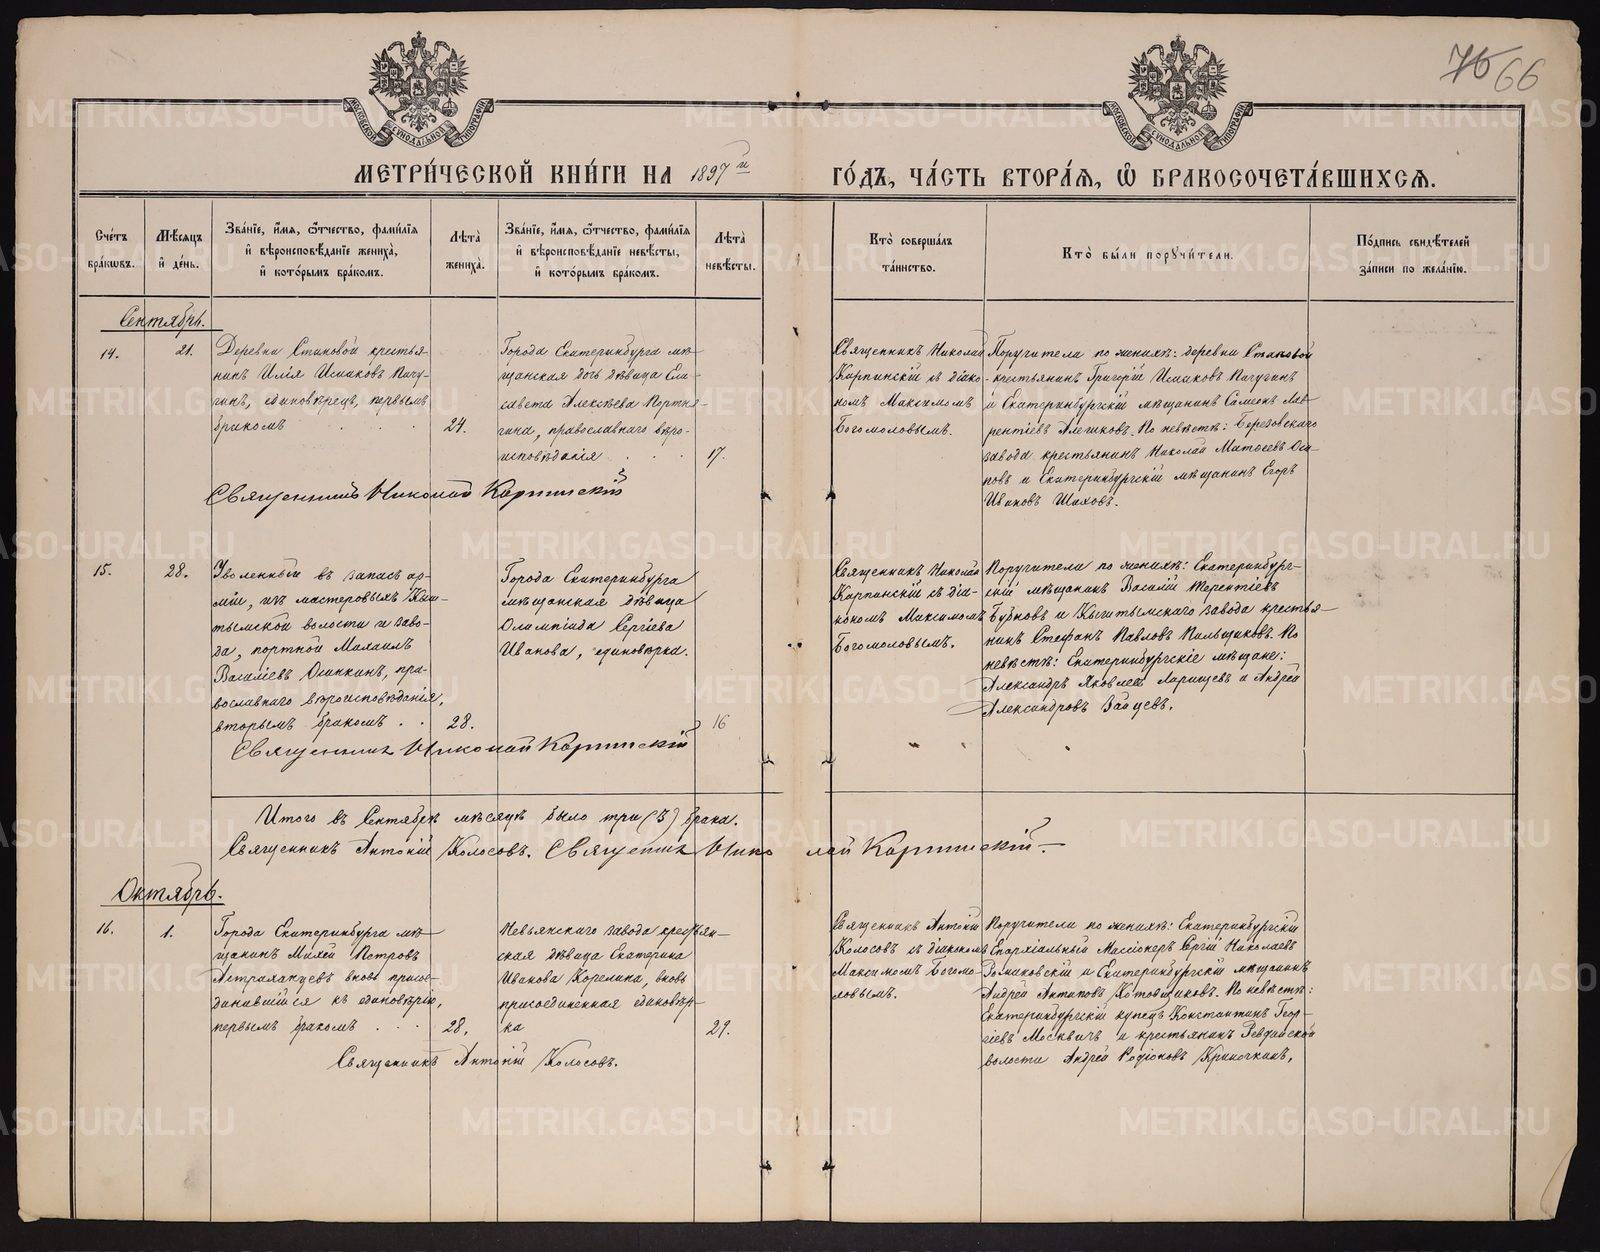 75 66
МОСКОВСКОЙ СѴНОДАЛЬНОЙ ТИПОГРАФІИ
МОСКОВСКОЙ СѴНОДАЛЬНОЙ ТИПОГРАФІИ
МЕТРИ́ЧЕСКОЙ КНИ́ГИ НА 1897й ГО́ДЪ, ЧА́СТЬ ВТОРА́Я, Ѽ БРАКОСОЧЕТА́ВШИХСЯ.
Сче́тъ бра́кѡвъ.
Мѣ́сяцъ и҆ де́нь.
Зва́нїе, и҆́мя, ѻ҆́тчество, фами́лїя и҆ вѣроисповѣ́данїе жениха̀, и҆ кото́рымъ бра́комъ.
Лѣта̀ жениха̀.
Зва́нїе, и҆́мя, ѻ҆́тчество, фами́лїя и҆ вѣроисповѣ́данїе невѣ́сты, и҆ кото́рымъ бра́комъ.
Лѣта̀ невѣ́сты.
Кто̀ соверша́лъ та́инство.
Кто̀ бы́ли порꙋчи́тели.
По́дпись свидѣ́телей за́писи по жела́нїю.
Сентябрь.
14.
21.
Деревни Становой крестья-
нинъ Илія Исааковъ Пичу-
гинъ, единовѣрецъ, первымъ
бракомъ . . .
24.
Города Екатеринбурга мѣ-
щанская дочь дѣвица Ели-
савета Алексѣева Портня-
гина, православнаго вѣро-
исповѣданія . . .
17.
Священникъ Николай
Карпинскій съ діако-
номъ Максимомъ
Богомоловымъ.
Поручители по женихѣ: деревни Становой
крестьянинъ Григорій Исааковъ Пичугинъ
и Екатеринбургскій мѣщанинъ Семенъ Лав-
рентіевъ. По невѣстѣ: Березовскаго
завода крестьянинъ Николай Матвѣевъ Оси-
повъ и Екатеринбургскій мѣщанинъ Егоръ
Ивановъ Шаховъ.
Священникъ Николай Карпинскій
15.
28.
Уволенный въ запасъ ар-
міи, изъ мастеровыхъ Кыш-
тымской волости и заво-
да, портной Михаилъ
Василіевъ Осинкинъ, пра-
вославнаго вѣроисповѣданія,
вторымъ бракомъ . .
28.
Города Екатеринбурга
мѣщанская дѣвица
Олимпіада Сергіева
Иванова, единовѣрка.
16
Священникъ Николай
Карпинскій съ діа-
кономъ Максимомъ
Богомоловымъ.
Поручители по женихѣ: Екатеринбург-
скій мѣщанинъ Василій Терентіевъ
Бубновъ и Кыштымскаго завода крестья-
нинъ Стефанъ Павловъ Пильщиковъ. По
невѣстѣ: Екатеринбургскіе мѣщане:
Александръ Яковлев Ларищевъ и Андрей
Александровъ Зайцевъ.
Священникъ Николай Карпинскій
Итого въ Сентябрѣ мѣсяцѣ было три (3) брака.
Священникъ Антоній Колосовъ. Священникъ Николай Карпинскій
Октябрь.
16.
1.
Города Екатеринбурга мѣ-
щанинъ Михей Петровъ
Астраханцевъ вновь присое-
динившійся къ единовѣрію,
первымъ бракомъ . . .
28.
Невьянскаго завода крестьян-
ская дѣвица Екатерина
Иванова Корелина, вновь
присоединенная единовѣр-
ка
29.
Священникъ Антоній
Колосовъ съ діакономъ
Максимомъ Богомо-
ловымъ.
Поручители по женихѣ: Екатеринбургскій
Епархіальный Миссіонеръ Сергій Николаевъ
Романовскій и Екатеринбургскій мѣщанинъ
Андрей Антиповъ Котовщиковъ. По невѣстѣ:
Екатеринбургскій купецъ Константинъ Геор-
гіевъ Москвичъ и крестьянинъ Ревдинской
волости Андрей Родіоновъ Криночкинъ.
Священникъ Антоній Колосовъ.
METRIKI.GASO-URAL.RU